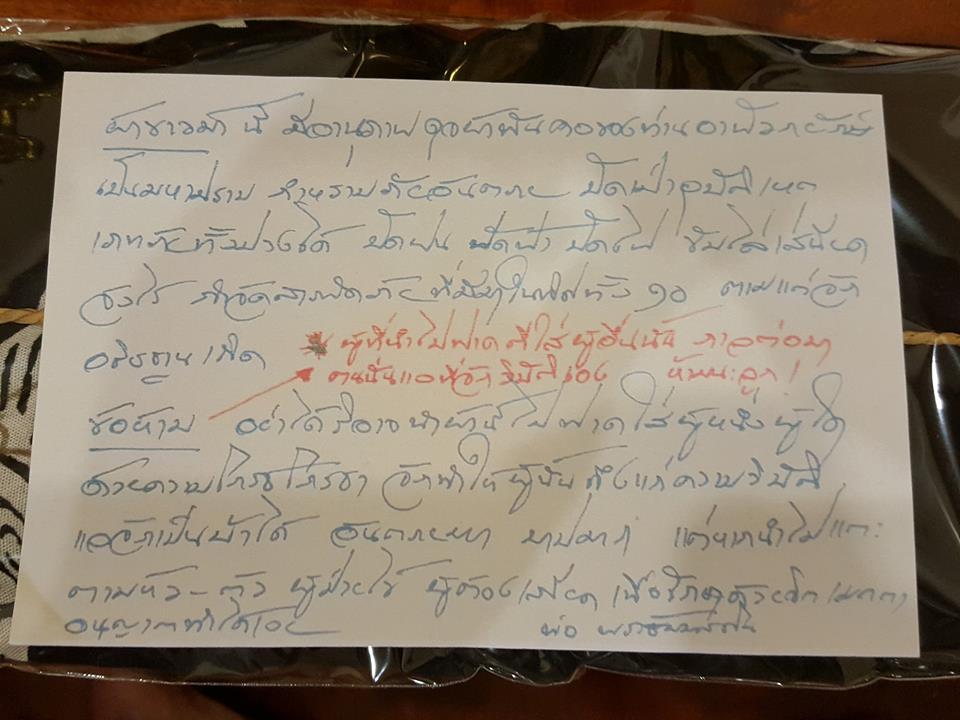 ผ้าขาวม้า นี้ มีอานุภาพ ดุจผ้าพันคอของท่านอาฬวกยักษ์
เป็นมหาปราบ กำหราบภัยอันตราย ปัดเป่าอุบัติเหตุ
เภทภัยทั้งปวงได้ ปัดฝน ปัดฟ้า ปัดไฟ ขับไล่เสนียด
จัญไร กำจัดสารพัดภัย ที่มีมาในทิศทั้ง ๑๐ ตามแต่จัก
อธิษฐาน เทิด
* ผู้ที่นำไปฟาดตีใส่ผู้อื่นนั้น กาลต่อมา
ตนนั่นแลที่จักวิบัติเอง หั้นนะลูก!
ข้อห้าม อย่าได้ริอาจนำผ้านี้ไปฟาดใส่ผู้หนึ่งผู้ใด
ด้วยความโกรธโกรธา จักทำให้ผู้นั้นถึงแก่ความวิบัติ
แลจักเป็นบ้าได้ อันตรายหา บาปหนา แต่หากนำไปแตะ
ตามหัว-ตัว ผู้ป่วยไข้ ผู้ต้องเสนียด เพื่อรักษาด้วยจิตเมตตา
อนุญาตทำได้เอย
พ่อ